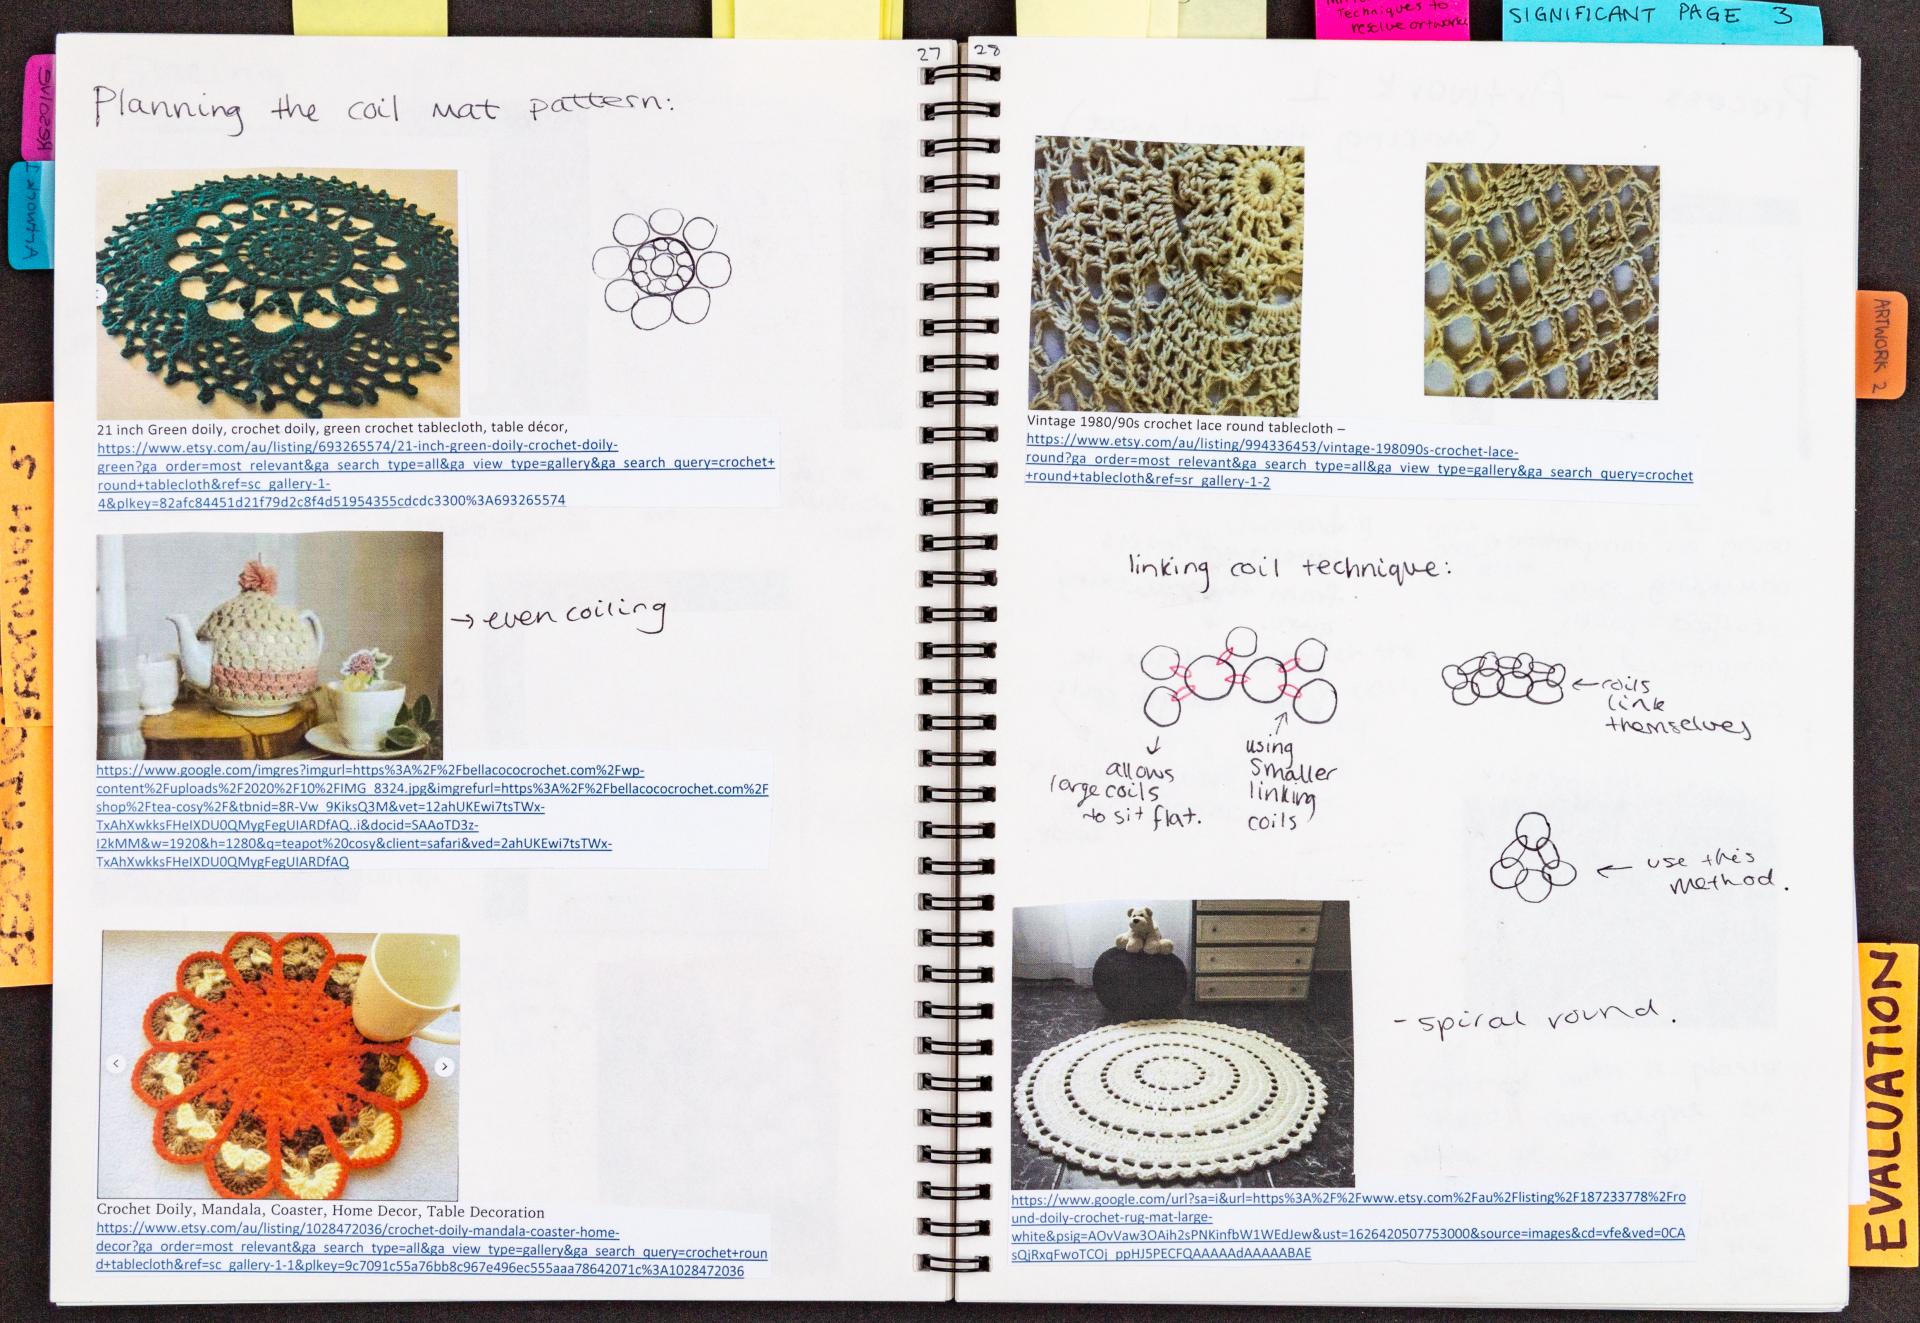 Techniques to
resolve artworks
SIGNIFICANT PAGE 3
27
28
Planning the coil mat pattern:
21 inch Green doily, crochet doily, green crochet tablecloth, table décor,
https://www.etsy.com/au/listing/693265574/21-inch-green-doily-crochet-doily-
green?ga_order=most_relevant&ga_search_type=all&ga_view_type=gallery&ga_search_query=crochet+
round+tablecloth&ref=sc_gallery-1-
4&plkey=82afc84451d21f79d2c8f4d51954355cdcdc3300%3A693265574
→ even coiling
https://www.google.com/imgres?imgurl=https%3A%2F%2Fbellacococrochet.com%2Fwp-
content%2Fuploads%2F2020%2F10%2FIMG_8324.jpg&imgrefurl=https%3A%2F%2Fbellacococrochet.com%2F
shop%2Ftea-cosy%2F&tbnid=8R-Vw_9KiksQ3M&vet=12ahUKEwi7tsTWx-
TxAhXwkksFHeIXDU0QMygFegUIARDfAQ..i&docid=SAAoTD3z-
I2kMM&w=1920&h=1280&q=teapot%20cosy&client=safari&ved=2ahUKEwi7tsTWx-
TxAhXwkksFHeIXDU0QMygFegUIARDfAQ
Crochet Doily, Mandala, Coaster, Home Decor, Table Decoration
https://www.etsy.com/au/listing/1028472036/crochet-doily-mandala-coaster-home-
decor?ga_order=most_relevant&ga_search_type=all&ga_view_type=gallery&ga_search_query=crochet+roun
d+tablecloth&ref=sc_gallery-1-1&plkey=9c7091c55a76bb8c967e496ec555aaa78642071c%3A1028472036
Vintage 1980/90s crochet lace round tablecloth –
https://www.etsy.com/au/listing/994336453/vintage-198090s-crochet-lace-
round?ga_order=most_relevant&ga_search_type=all&ga_view_type=gallery&ga_search_query=crochet
+round+tablecloth&ref=sr_gallery-1-2
linking coil technique:
allows
large coils
to sit flat.
using
smaller
linking
coils
← coils
link
themselves
← use this
method.
- spiral round.
https://www.google.com/url?sa=i&url=https%3A%2F%2Fwww.etsy.com%2Fau%2Flisting%2F187233778%2Fro
und-doily-crochet-rug-mat-large-
white&psig=AOvVaw3OAih2sPNKinfbW1WEdJew&ust=1626420507753000&source=images&cd=vfe&ved=0CA
sQjRxqFwoTCOj_ppHJ5PECFQAAAAAdAAAAABAE
ARTWORK 2
EVALUATION
ARTWORK 1